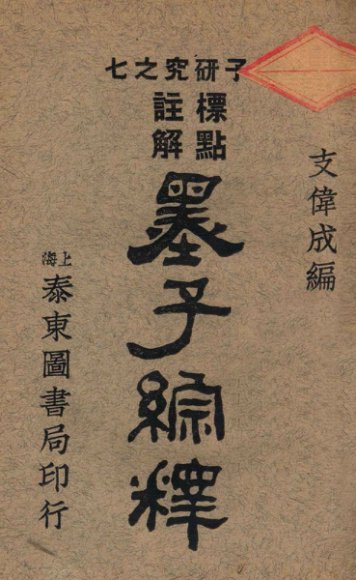 子研究之七
支偉成編
標點
註解
墨子綜釋
上海
泰東圖書局印行